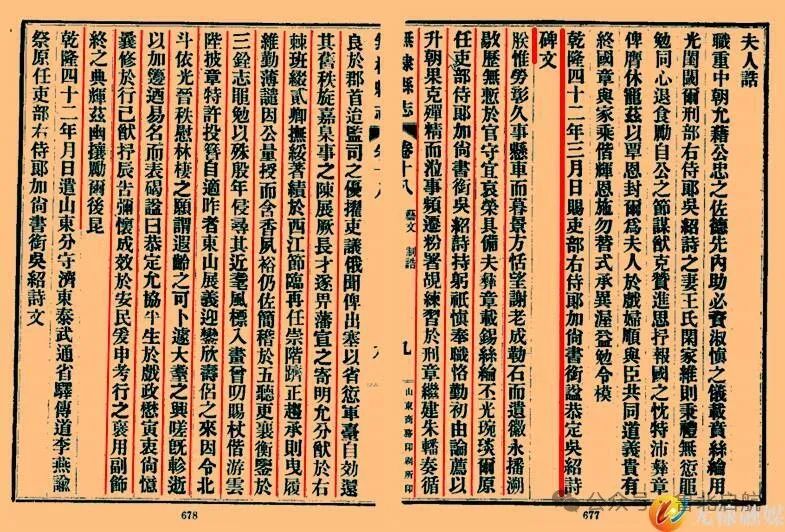 夫人誥
職重中朝允藉公忠之佐德先內助必資淑慎之儀載賁絲綸用
光閨闥爾刑部右侍郎吳紹詩之妻王氏閑家維則秉禮無愆龍
勉同心退食勵自公之節謀猷克贊進思抒報國之忱特沛彝章
俾膺休寵茲以覃恩封爾為夫人於戲婦順與臣共同道義貴有
終國章與家乘偕輝恩施勿替式承異渥益勉令模
乾隆四十二年三月日賜吏部右侍郎加尚書銜諡恭定吳紹詩
碑文
朕惟勞彰久事懸車而暮景方恬望謝老成勒石而遺徽永播溯
敭歷無慙於官守宜哀榮具備夫彝章載錫絲綸丕光琬琰爾原
任吏部侍郎加尚書銜吳紹詩持躬祇慎奉職恪勤初由論薦以
升朝果克殫精而涖事頻遷粉署覘練習於刑章繼建朱轓奏循
無棣縣志
卷十八
藝文 制誥
九
山東商務印刷所印
677
良於郡首洎監司之優擢吏議俄聞俾出塞以省愆軍臺自効還
其舊秩旋嘉臬事之陳展厥長才遂畀藩宣之寄明允分猷於右
棘班綴貳卿撫綏著績於西江節臨再任崇階躋正趨承則曳履
維勤薄譴因公量授而含香夙裕仍佐簡稽於五聽更襄衡鑒於
三銓志黽勉以殊殷年侵尋其近耄風標入畫曾叨賜杖偕游雲
陛披章特許投簪自適昨者東山展義迎鑾欣壽侶之來因令北
斗依光晉秩慰林棲之願謂遐齡之可卜遽大耋之興嗟既軫逝
以加籩迺易名而表碣諡曰恭定允協半生於戲政懋寅衷尚憶
義修於行已猷抒辰告彌懷成效於安民爰申考行之褒用副飾
終之典輝茲幽壤勵爾後昆
乾隆四十二年月日遣山東分守濟東泰武通省驛傳道李燕諭
祭原任吏部右侍郎加尚書銜吳紹詩文
678
公众号
无棣融媒